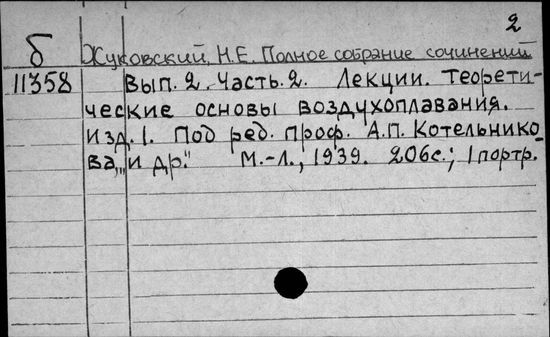 2
б Жуковский, Н.Е. Полное собрание сочинений
11358 Вып. 2. Часть. 2. Лекции. Теорети-
ческие основы воздухоплавания.
Изд. 1. Под ред. проф. А.П. Котельнико-
ва „и др." М.-Л., 1939. 206с.; 1 портр.